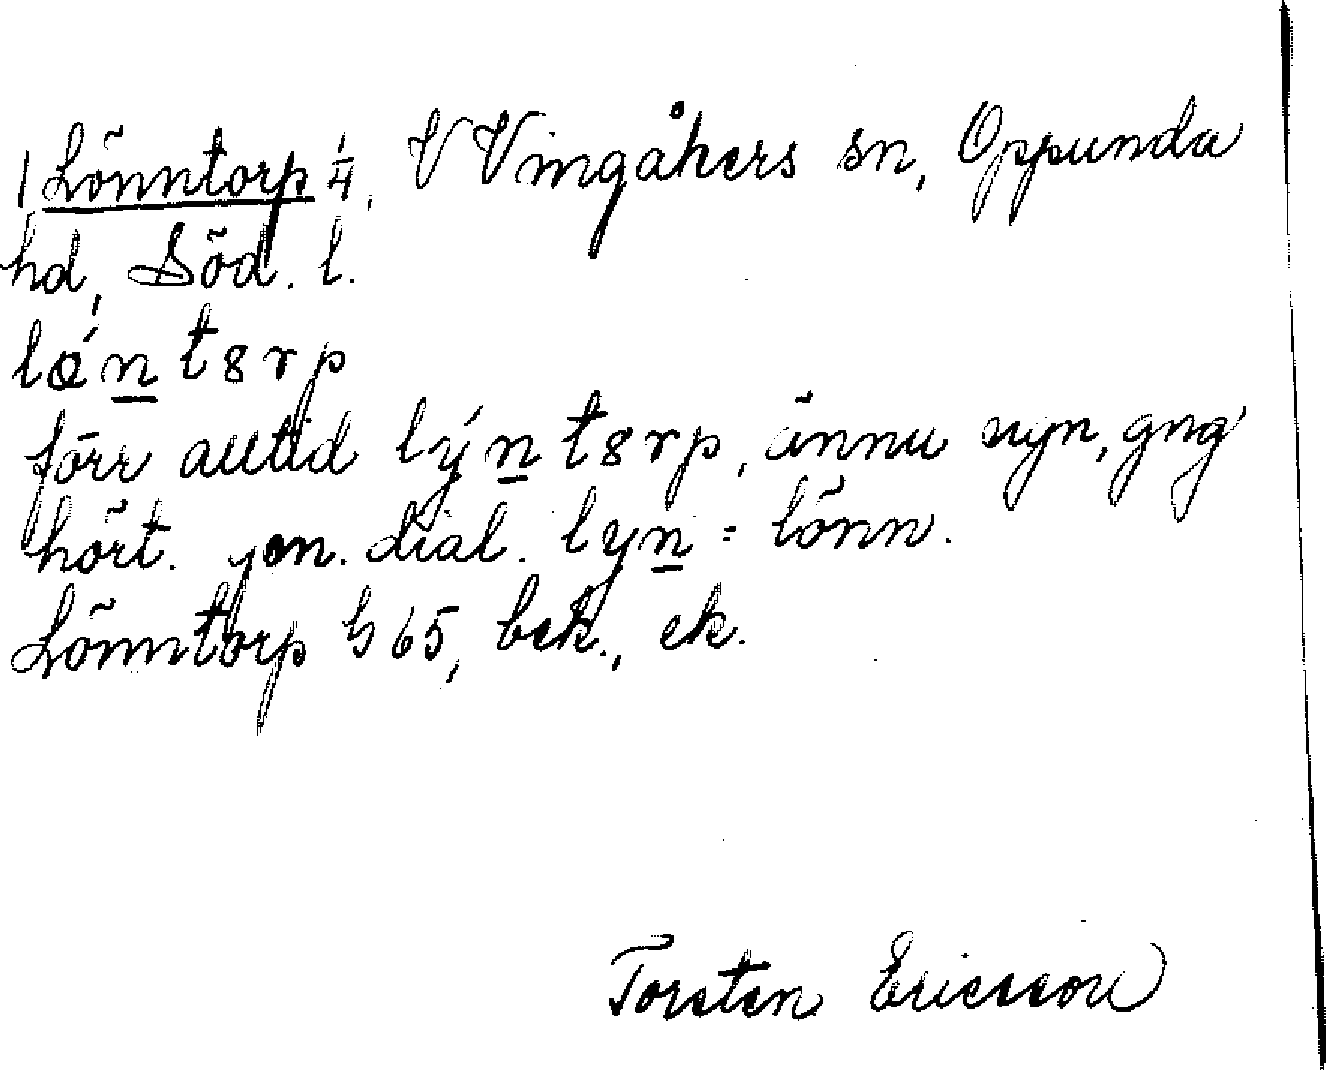 1 Lönntorp 1/4, V Vingåkers sn, Oppunda
hd, Söd. l.
lǿn̲t8rp
förr alltid lýn̲t8rp, ännu nyn, gng
hört. jon. dial. lyn̲ = lönn.
Lönntorp G 65, bek., ek.
Torsten Ericsson